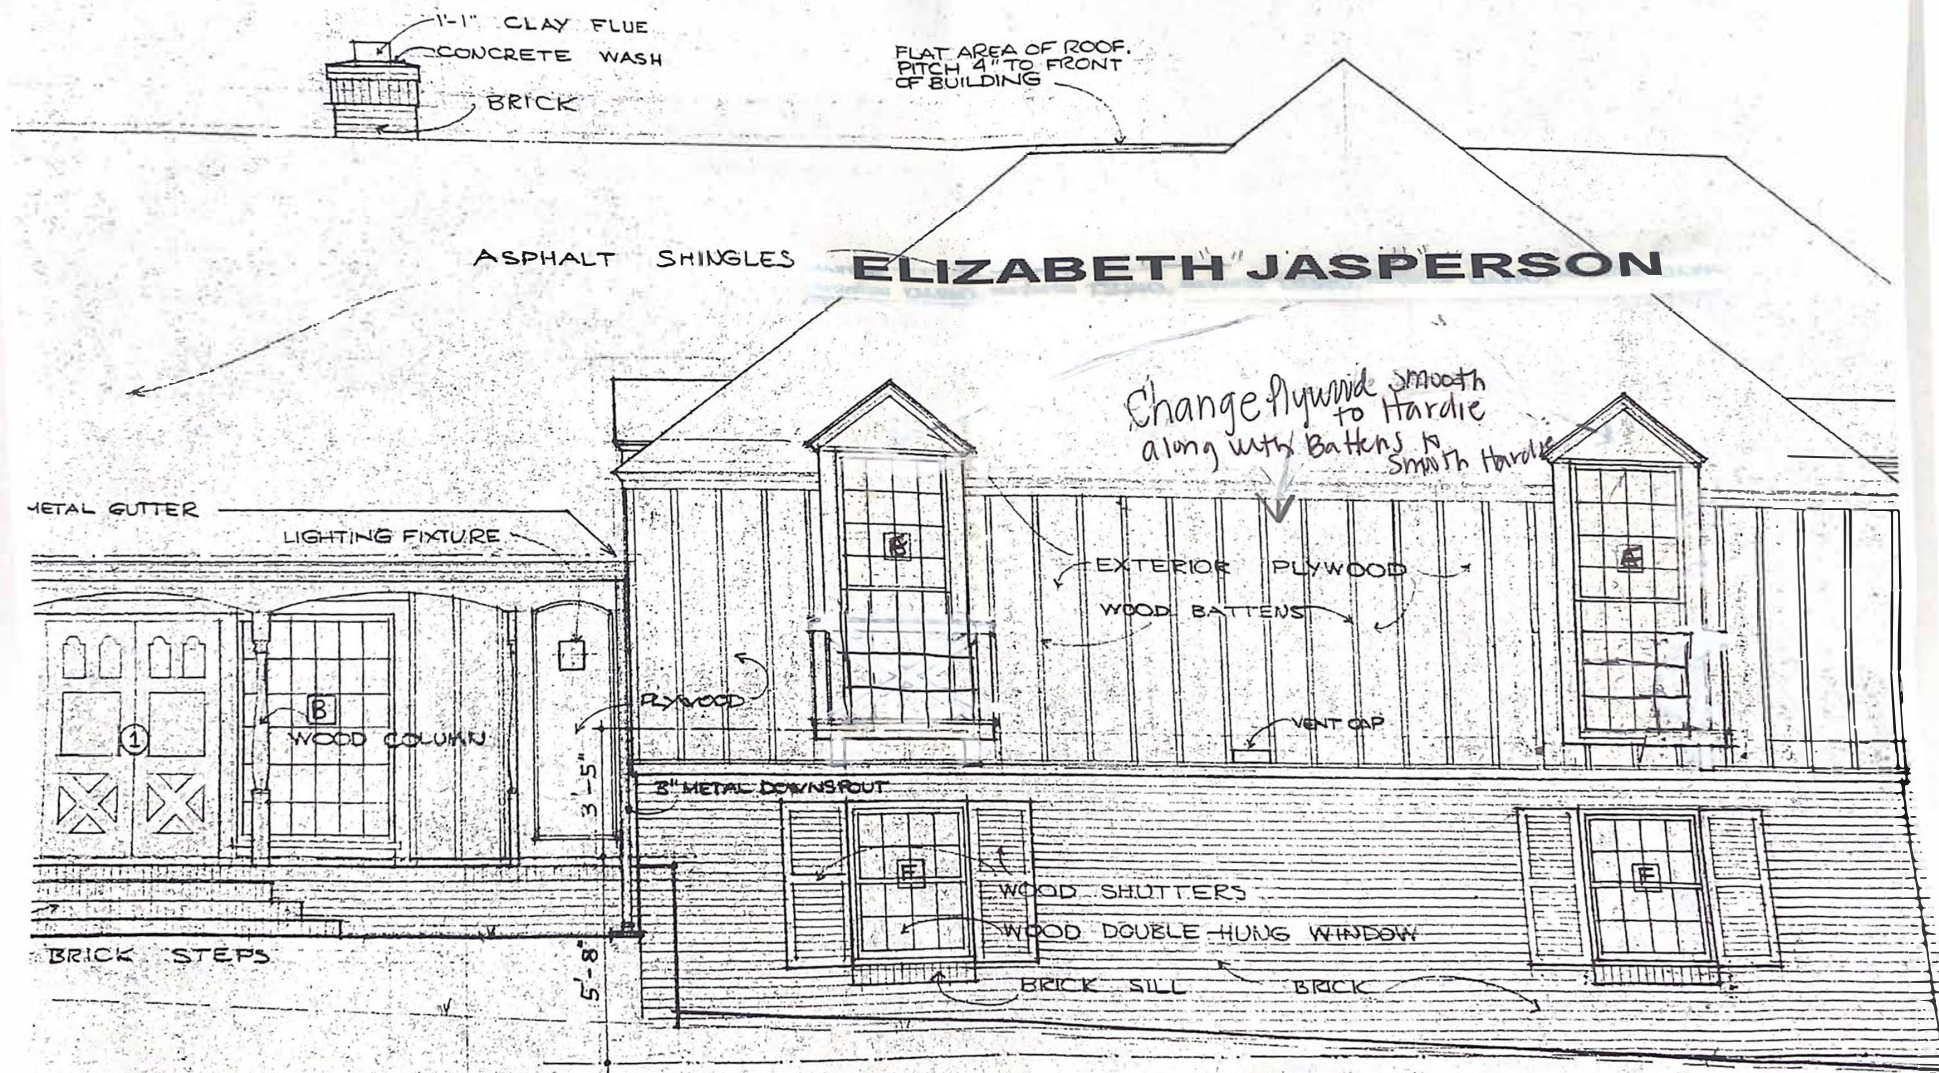 1'-1" CLAY FLUE
CONCRETE WASH
BRICK
FLAT AREA OF ROOF.
PITCH 4" TO FRONT
OF BUILDING
ASPHALT SHINGLES
ELIZABETH JASPERSON
Change Plywood smooth
to Hardie
along with Battens to
Smooth Hardie
METAL GUTTER
LIGHTING FIXTURE
EXTERIOR PLYWOOD
WOOD BATTENS
PLYWOOD
B
WOOD COLUMN
1
VENT CAP
3'-5"
3" METAL DOWNSPOUT
F
F
WOOD SHUTTERS
WOOD DOUBLE-HUNG WINDOW
BRICK STEPS
5'-8"
BRICK SILL
BRICK